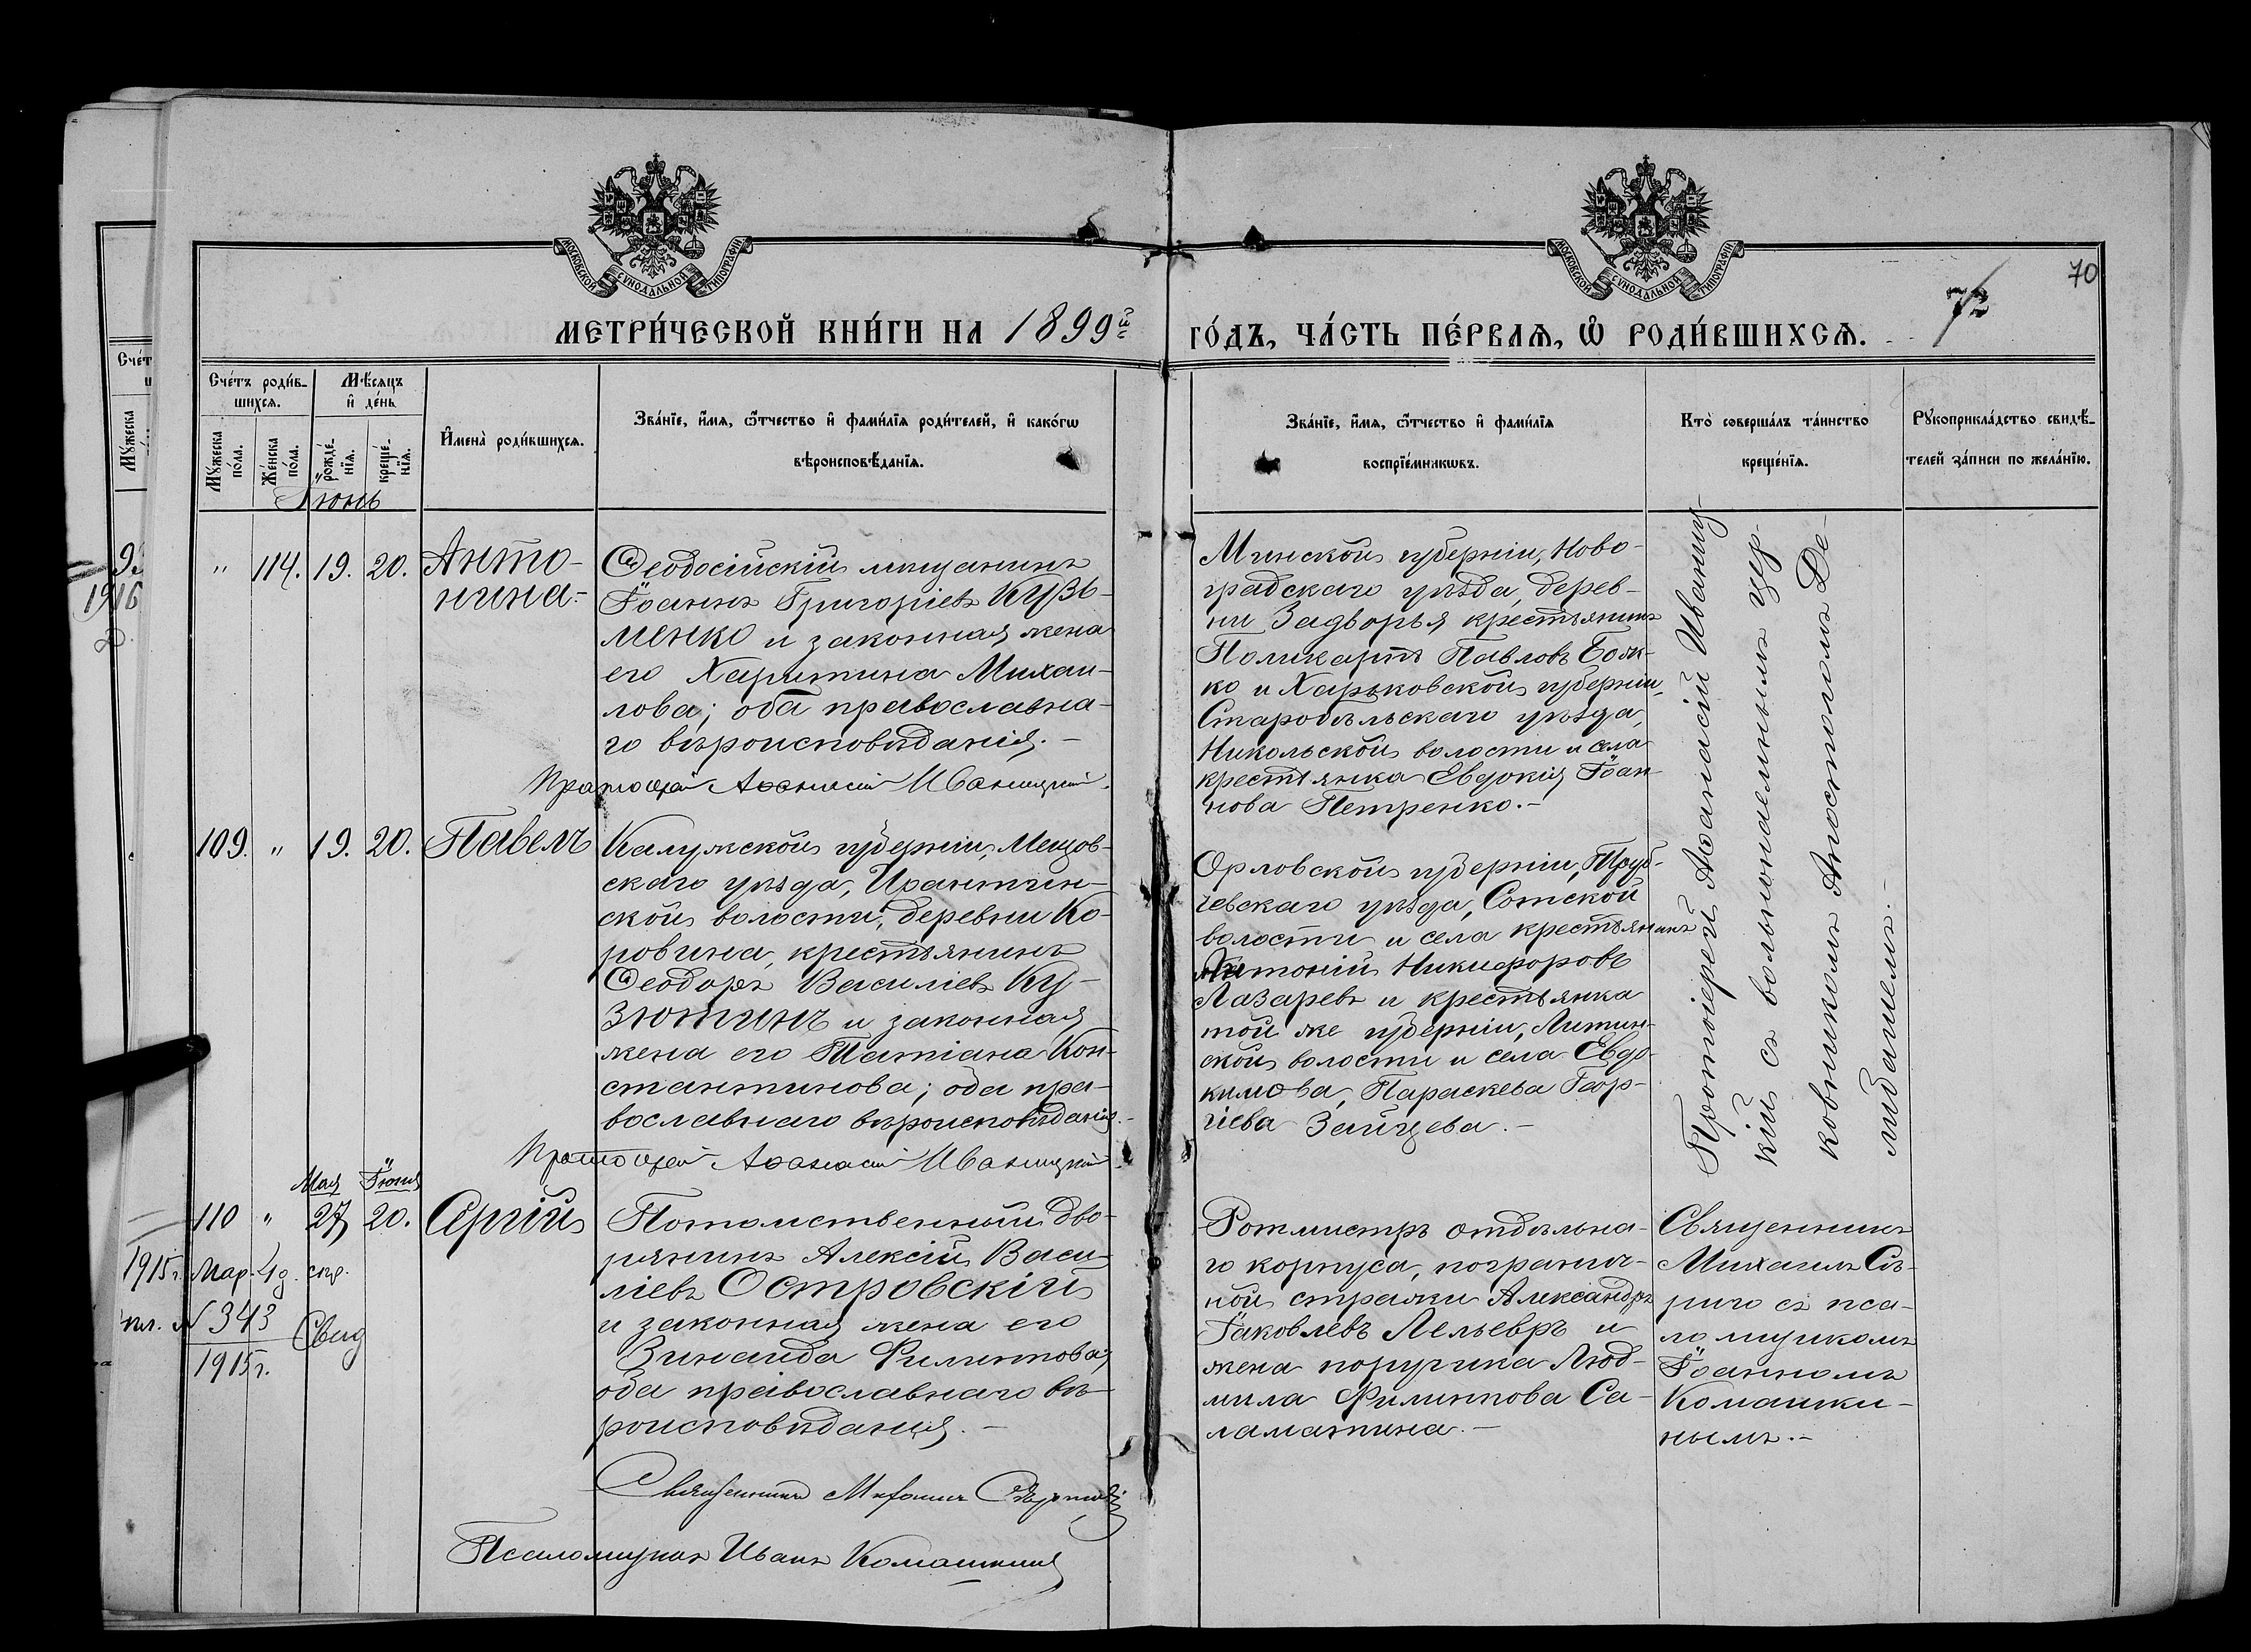 МОСКОВСКОЙ СѴНОДАЛЬНОЙ ТИПОГРАФІИ
МОСКОВСКОЙ СѴНОДАЛЬНОЙ ТИПОГРАФІИ
70
72
МЕТРИ́ЧЕСКОЙ КНИ́ГИ НА 1899й ГО́ДЪ, ЧА́СТЬ ПЕ́РВАѦ, Ѡ҆ РОДИ́ВШИХСѦ.
Сче́тъ роди́в-
шихсѧ.
Мѣ́сѧцъ
и҆ де́нь
Мꙋ́жеска
по́ла.
Же́нска
по́ла.
рожде́-
нїѧ.
креще́-
нїѧ.
И҆мена̀ роди́вшихсѧ.
Зва́нїе, и҆́мѧ, ѻ҆́тчество и҆ фами́лїѧ роди́телей, и҆ како́гѡ
вѣроисповѣ́данїѧ.
Зва́нїе, и҆́мѧ, ѻ҆́тчество и҆ фами́лїѧ
воспрїе́мникѡвъ.
Кто̀ соверша́лъ та́инство
креще́нїѧ.
Рꙋкоприкла́дство свидѣ́-
телей за́писи по жела́нїю.
Сче́т
Мꙋ́жеска
93
1916
Іюнь
" 114. 19. 20. Анто-
нина.
Ѳеодосійскій мѣщанинъ
Іоаннъ Григоріевъ Кузь-
менко и законная жена
его Харитина Михаи-
лова; оба православна-
го вѣроисповѣданія.-
Протоіерей Аѳанасій Иваницкій.
Минской губерніи, Ново-
градскаго уѣзда, дерев-
ни Задворья крестьянинъ
Поликарпъ Павловъ Бой-
ко и Харьковской губерніи,
Старобѣльскаго уѣзда,
Никольской волости и села
крестьянка Евдокія Іоан-
нова Петренко.-
Протоіерей Аѳанасій Иваниц-
кій съ вольнонаемнымъ цер-
ковникомъ Апостоломъ Де-
мбашемъ.-
109. " 19. 20. Павелъ
Калужской губерніи, Мещов-
скаго уѣзда,
ской волости, деревни Ко-
ровина, крестьянинъ
Ѳеодоръ Василіевъ Ку-
зютинъ и законная
жена его Татіана Кон-
стантинова; оба пра-
вославнаго вѣроисповѣданія.-
Протоіерей Аѳанасій Иваницкій.
Орловской губерніи, Труб-
чевскаго уѣзда, Сотской
волости и села крестьянинъ
Антоній Никифоровъ
Лазаревъ и крестьянка
той же губерніи, Литин-
ской волости и села Евдо-
кимова, Параскева Геор-
гіева Зайцева.-
Мая Іюня
110 " 27 20. Сергій
1915 г. Мар. 4 д.
№ 343
1915 г.
Свид
Потомственный дво-
рянинъ Алексій Васи-
ліевъ Островскій
и законная жена его
Зинаида Филиппова;
оба православнаго вѣ-
роисповѣданія.-
Священникъ Михаилъ
Псаломщикъ Иванъ Комашкинъ
Ротмистръ отдѣльна-
го корпуса, погранич-
ной стражи Александръ
Іаковлевъ Лельевръ и
жена поручика Люд-
мила Филиппова Са-
ламатина.-
Священникъ
Михаилъ Сѣ-
риго съ пса-
ломщикомъ
Іоанномъ
Комашки-
нымъ.-